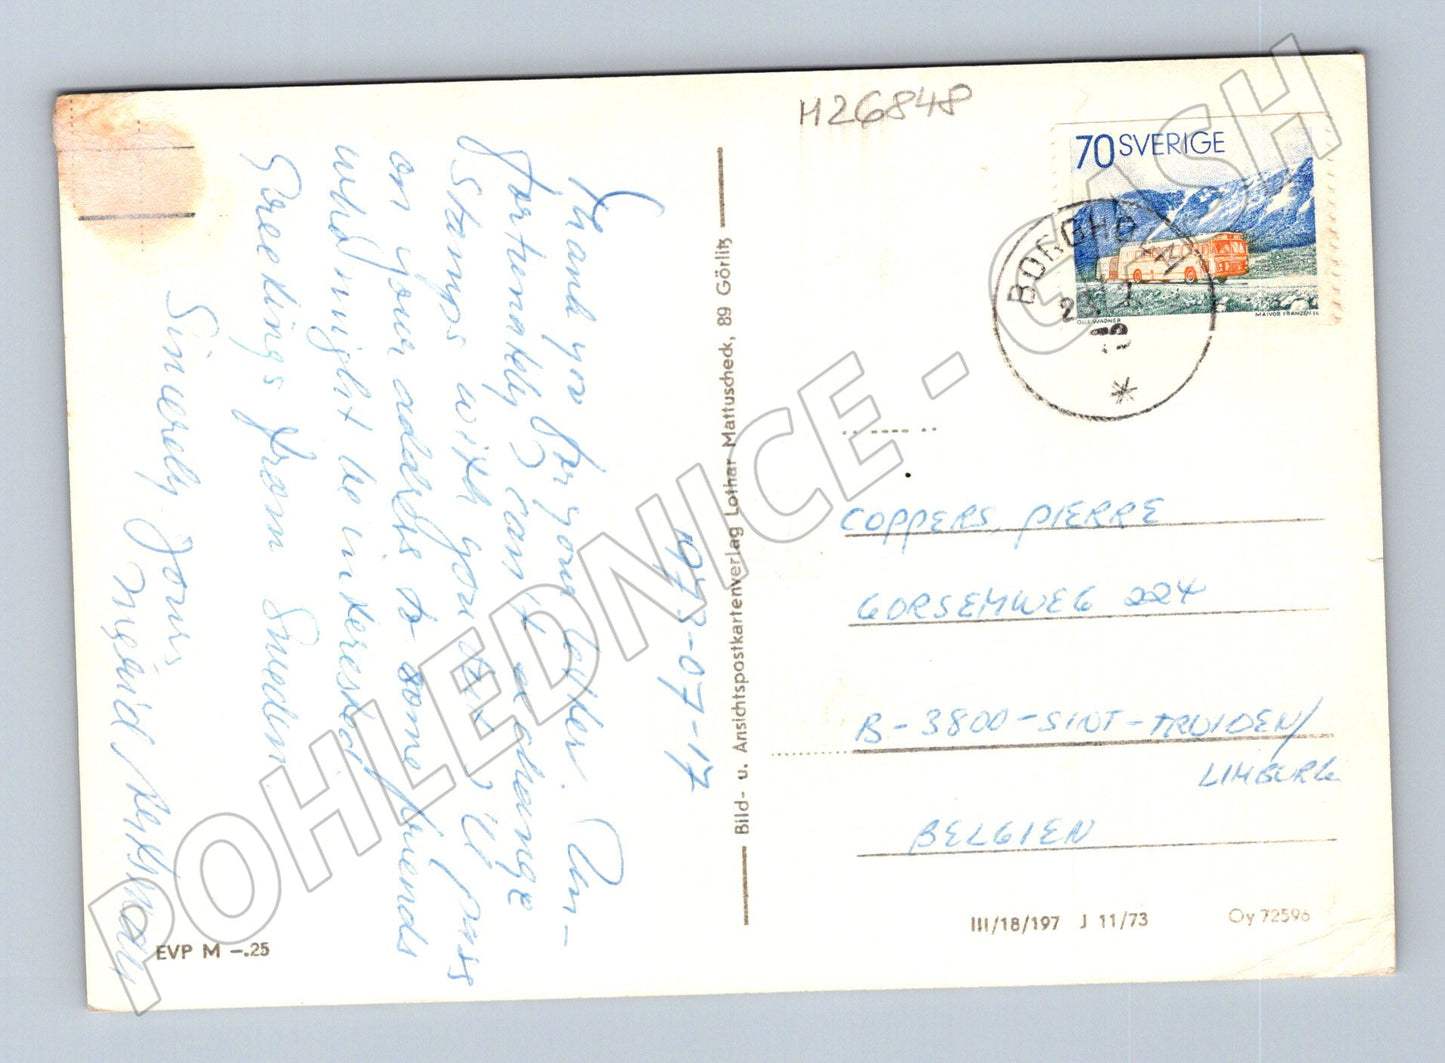 M26848
70 SVERIGE
OLLE WAGNER
MAJVOR FRANZÉN SC
BORGHOLM
*
1973-07-17
Thank you for your letter. Un-
fortunately, I can't exchange
stamps with you but I'll pass
on your address to some friends
who might be interested
Greetings from Sweden
Sincerely Yours
Ingrid
Bild- u. Ansichtspostkartenverlag Lothar Mattuscheck, 89 Görlitz
COPPERS, PIERRE
GORSEMWEG 224
B-3800-SINT-TRUIDEN/
LIMBURG
BELGIEN
EVP M -.25
III/18/197 J 11/73
Oy 72596
POHLEDNICE - CASH